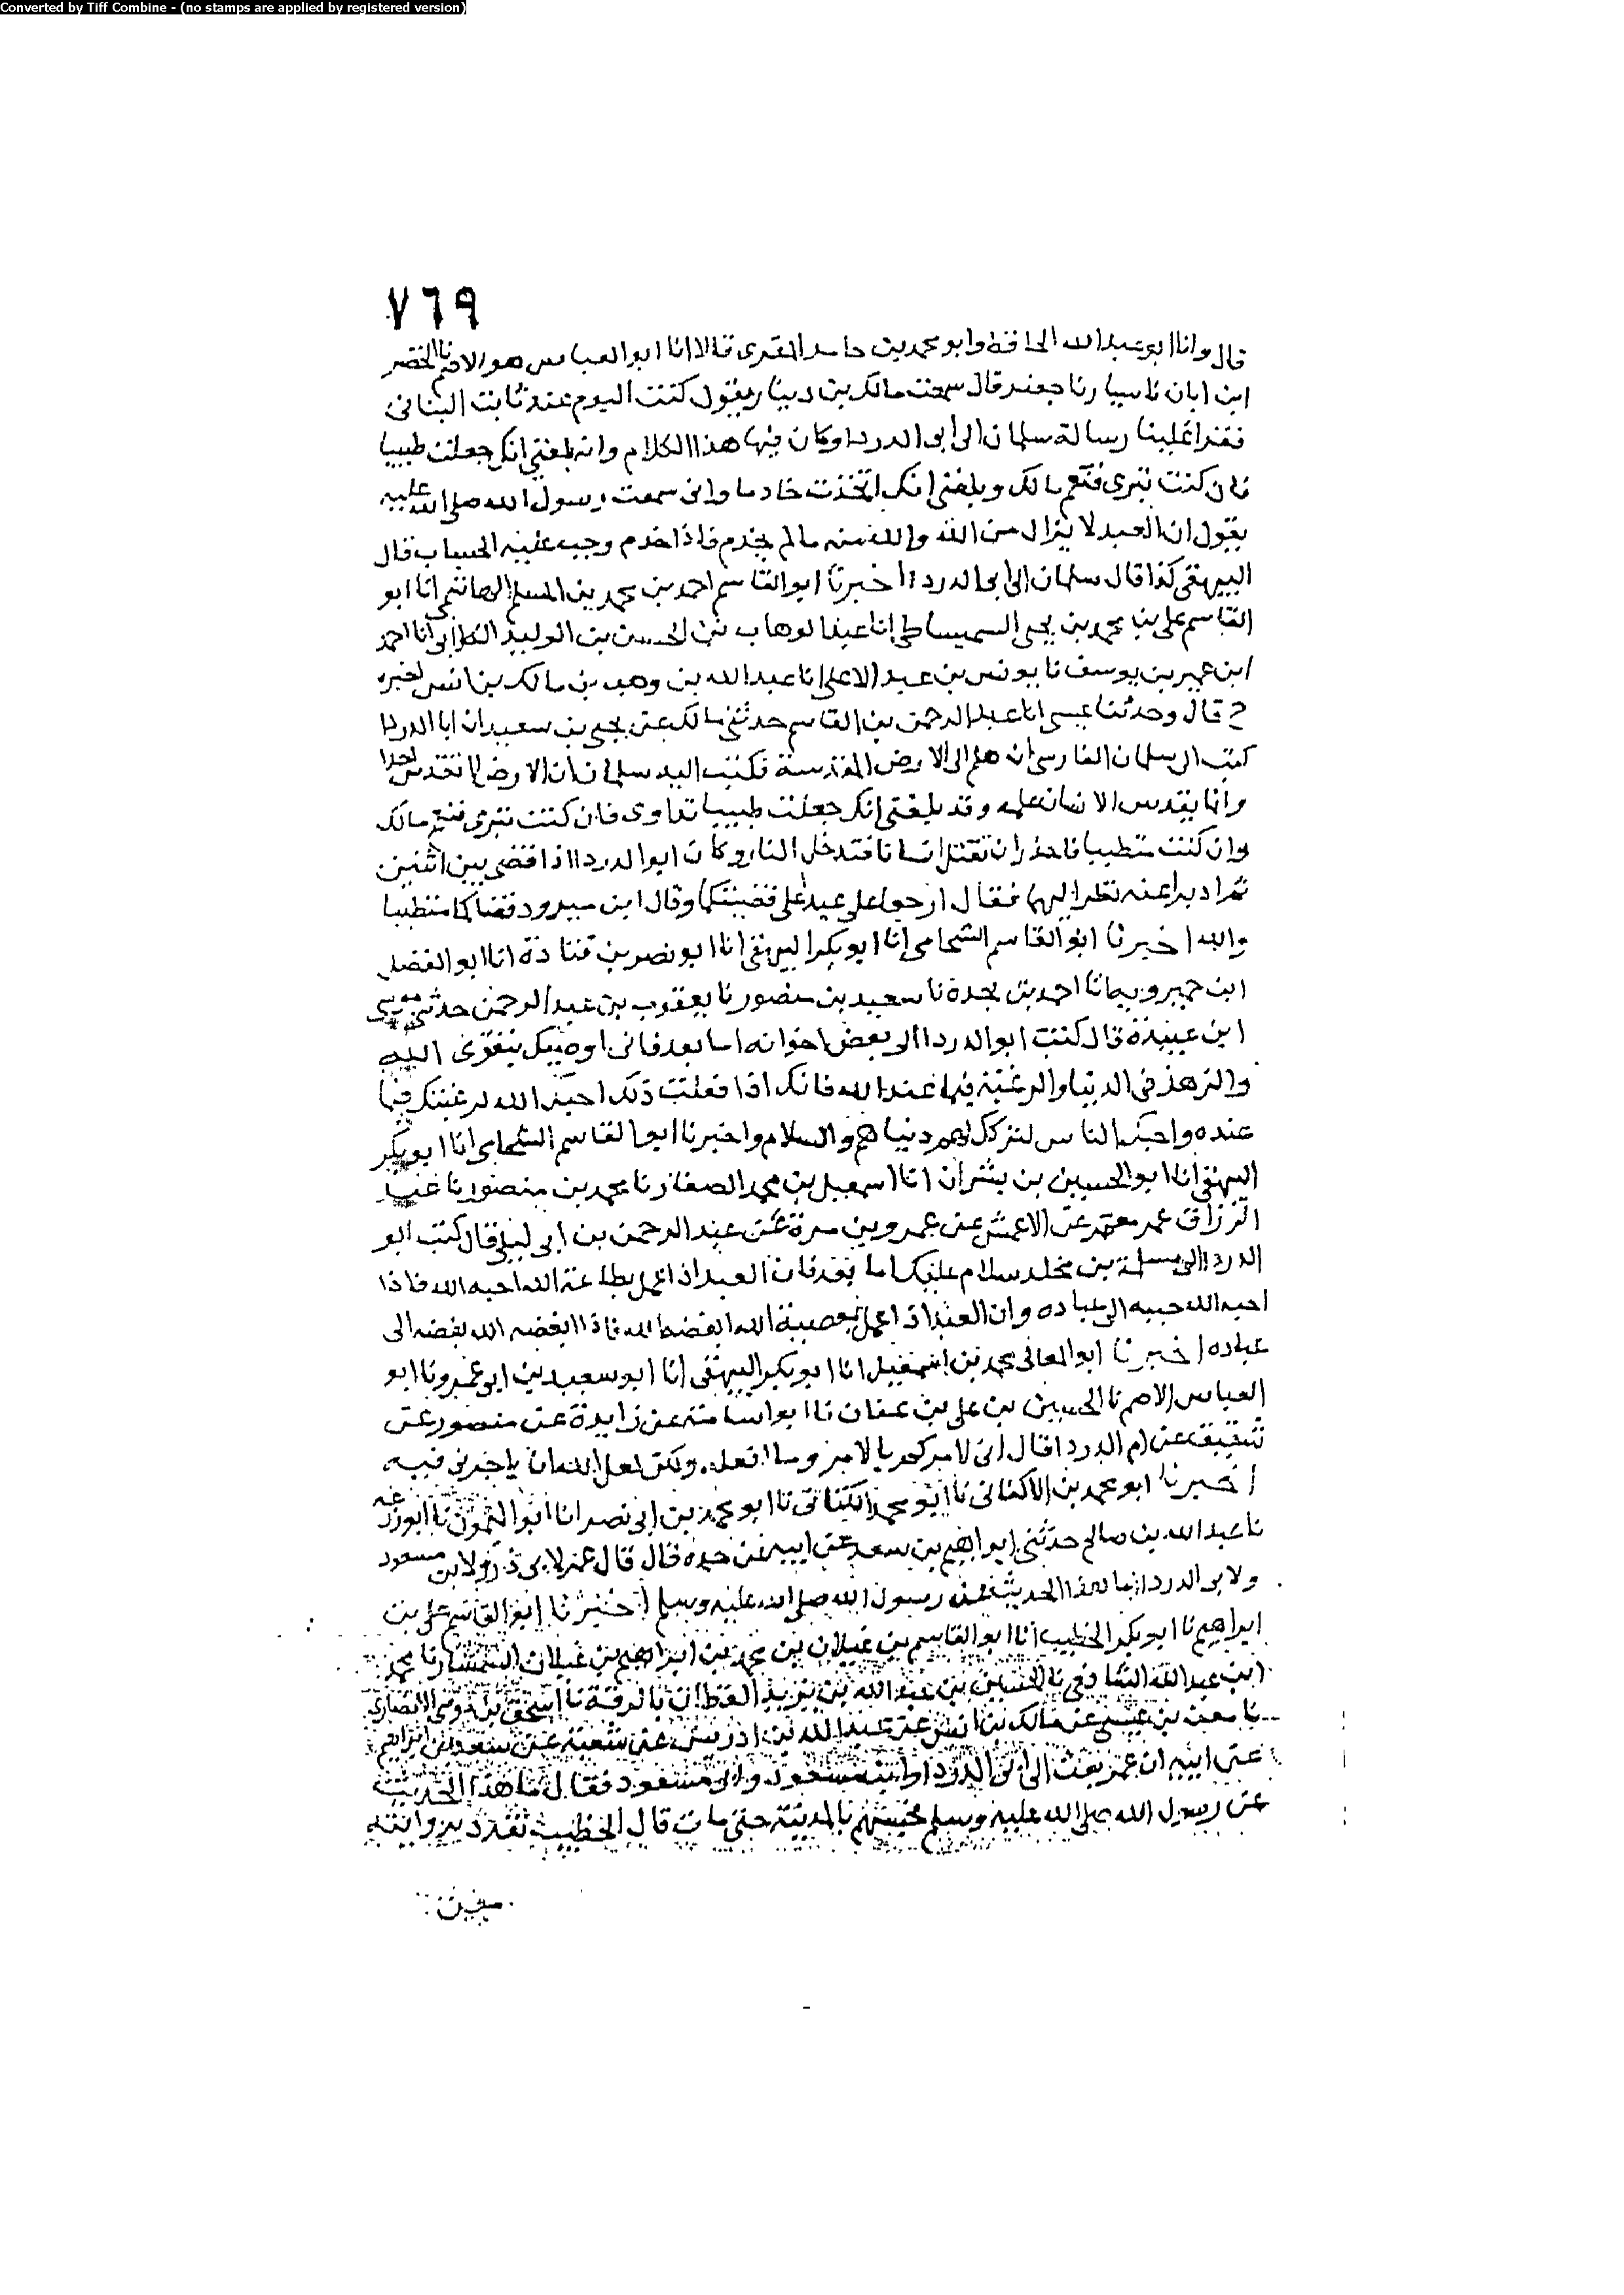 Converted by Tiff Combine - (no stamps are applied by registered version)
٧٦٩
قال وانا ابو عبد الله الحافظ وابو محمد بن حامد المقرى قالا انا ابو العباس هو الاصم نا الخضر
ابن ابان نا سيار نا جعفر قال سمعت مالك بن دينار يقول كنت اليوم عند ثابت البنانى
فقرا علينا رسالة سلمان الى ابى الدرداء وكان فيها هذا الكلام وانه بلغنى انك جعلت طبيبا
فان كنت تبرى فنعم مالك وبلغنى انك اتخذت خادما وانى سمعت رسول الله صلى الله عليه
يقول ان العبد لا يزال من الله والله منه ما لم يخدم فاذا خدم وجب عليه الحساب قال
البيهقى كذا قال سلمان الى ابى الدرداء اخبرنا ابو القاسم احمد بن محمد بن المسلم الهاشمى انا ابو
القاسم على بن محمد بن يحيى السميساطى انا عبد الوهاب بن الحسن بن الوليد الكلابى انا احمد
ابن عمير بن يوسف نا يونس بن عبد الاعلى انا عبد الله بن وهب بن مالك بن انس اخبره
ح قال وحدثنا عيسى انا عبد الرحمن بن القاسم حدثنى مالك عن يحيى بن سعيد ان ابا الدرداء
كتب الى سلمان الفارسى ان هلم الى الارض المقدسة فكتب اليه سلمان ان الارض لا تقدس احدا
وانما يقدس الانسان عمله وقد بلغنى انك جعلت طبيبا تداوى فان كنت تبرى فنعم مالك
وان كنت متطببا فاحذر ان تقتل انسانا فتدخل النار وكان ابو الدرداء اذا قضى بين اثنين
ثم ادبرا عنه نظر اليهما فقال ارجعا على عيدا على قضيتكما وقال ابن
والله اخبرنا ابو القاسم الشحامى انا ابو بكر البيهقى انا ابو نصر بن قتادة انا ابو الفضل
ابن خميرويه انا احمد بن نجدة نا سعيد بن منصور نا يعقوب بن عبد الرحمن حدثنى موسى
ابن عبيدة قال كتب ابو الدرداء الى بعض اخوانه اما بعد فانى اوصيك بتقوى الله
والزهد فى الدنيا والرغبة فيما عند الله فانك اذا فعلت ذلك احبك الله لرغبتك فيما
عنده واحبك الناس لتركك لهم دنياهم والسلام واخبرنا ابو القاسم الشحامى انا ابو بكر
البيهقى انا ابو الحسين بن بشران انا اسمعيل بن محمد الصفار نا محمد بن منصور نا عبد
الرزاق عن معمر عن الاعمش عن عمرو بن مرة عن عبد الرحمن بن ابى ليلى قال كتب ابو
الدرداء الى مسلمة بن مخلد سلام عليك اما بعد فان العبد اذا عمل بطاعة الله احبه الله فاذا
احبه الله حببه الى عباده وان العبد اذا عمل بمعصية الله ابغضه الله فاذا ابغضه الله بغضه الى
عباده اخبرنا ابو المعالى محمد بن اسمعيل انا ابو بكر البيهقى انا ابو سعيد بن ابى عمرو نا ابو
العباس الاصم نا الحسين بن على بن عفان نا ابو اسامة عن زايدة عن منصور عن
شقيق عن ام الدرداء قال انى لامركم بالامر وما افعله ولكن لعل الله ان ياجرنى فيه
اخبرنا ابو محمد بن الاكفانى نا ابو محمد الكتانى نا ابو محمد بن ابى نصر انا ابو الميمون نا ابو زرعه
نا عبد الله بن صالح حدثنى ابراهيم بن سعد عن ابيه عن جده قال قال عمر لابى ذر ولابن مسعود
ولابى الدرداء ما هذا الحديث عن رسول الله صلى الله عليه وسلم اخبرنا ابو القاسم على بن
ابراهيم نا ابو بكر الخطيب انا ابو القاسم بن غيلان بن محمد بن ابراهيم بن غيلان نا محمد
ابن عبد الله الشافعى نا الحسين بن عبد الله بن يزيد القطان بالرقة نا اسحق بن موسى الانصارى
نا معن بن عيسى عن مالك بن انس عن عبد الله بن ادريس عن شعبة عن سعد بن ابراهيم
عن ابيه ان عمر بعث الى ابى الدرداء وابن مسعود وابى مسعود فقال ما هذا الحديث
عن رسول الله صلى الله عليه وسلم فحبسهم بالمدينة حتى مات قال الخطيب تفرد بروايته